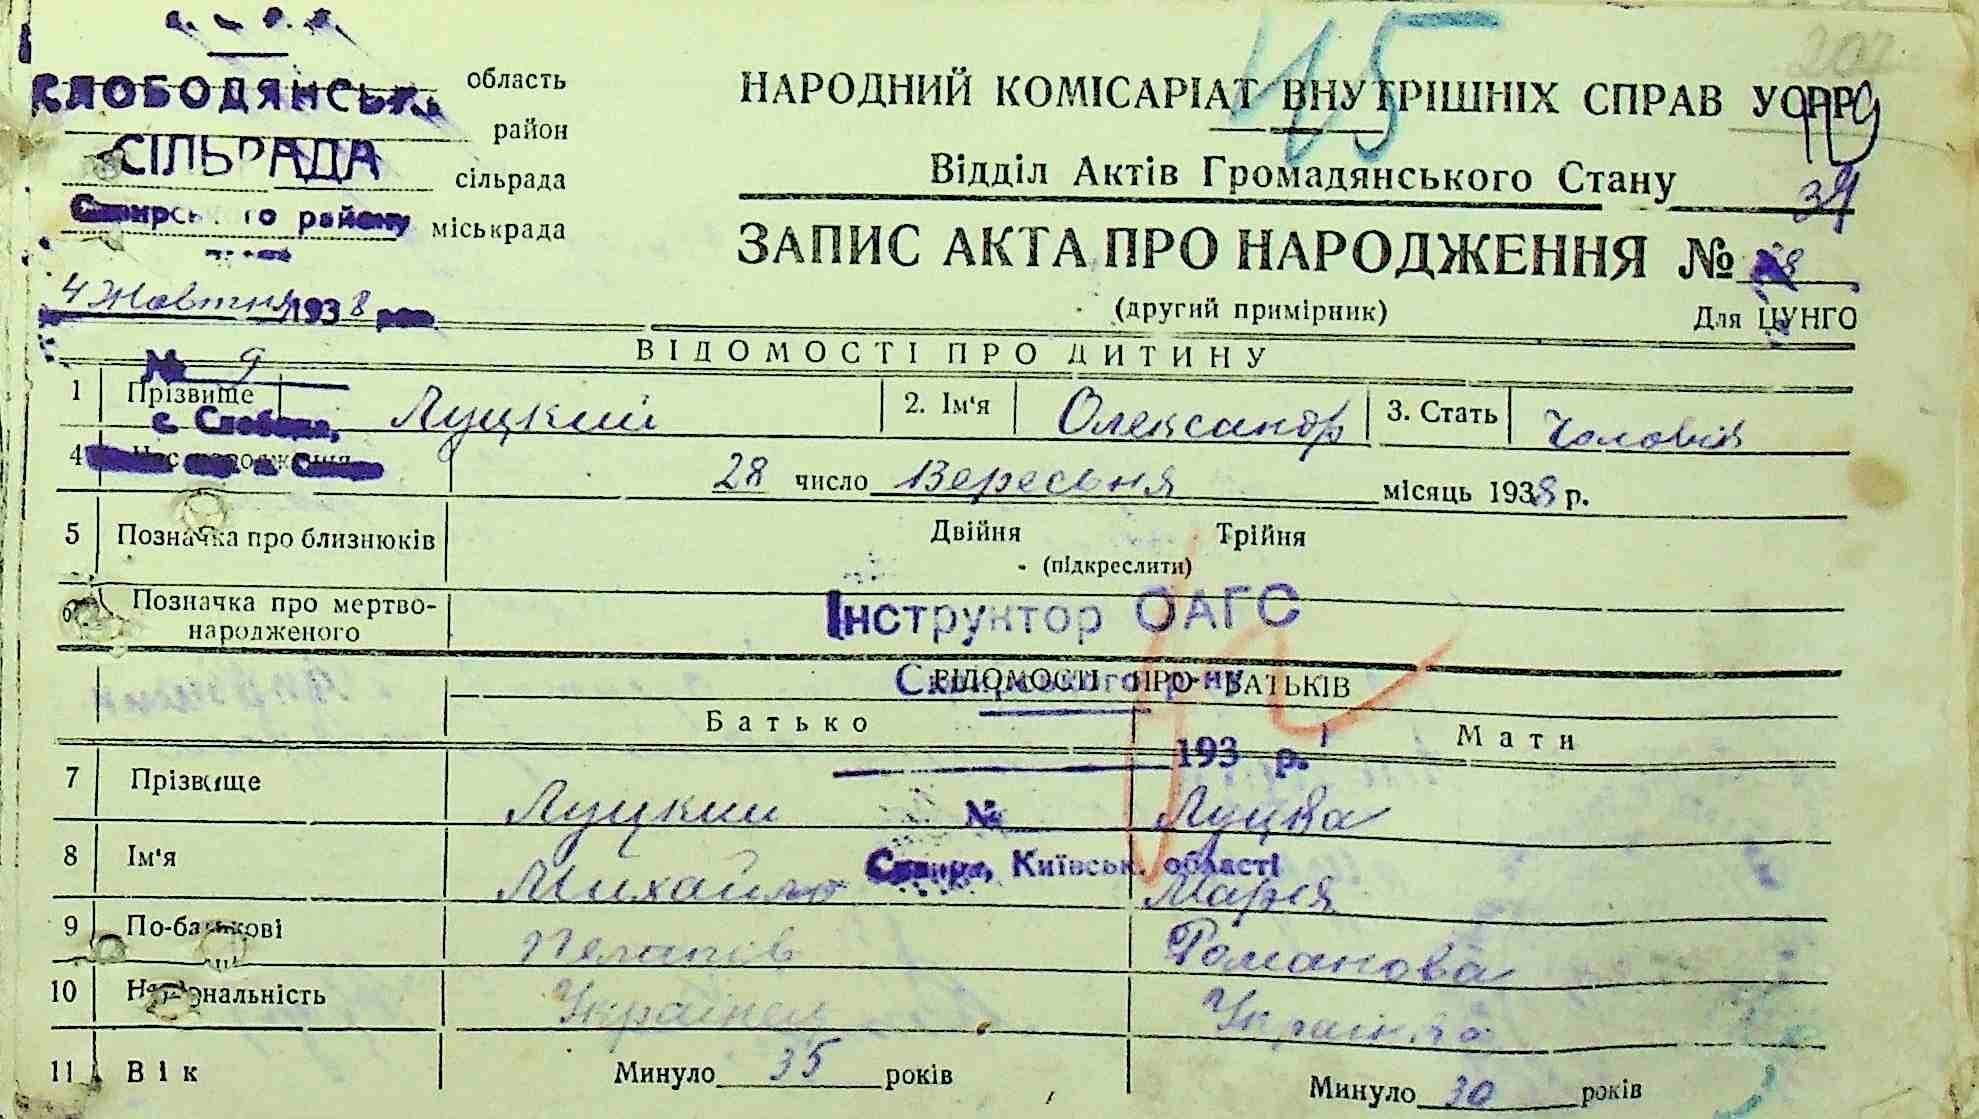 У.С.Р.Р.
СЛОБОДЯНСЬКА область
район
СІЛЬРАДА сільрада
Сквирського району міськрада
4 Жовтня 1938
№ 9
с. Слобода,
45
НАРОДНИЙ КОМІСАРІАТ ВНУТРІШНІХ СПРАВ УСРР
Відділ Актів Громадянського Стану
ЗАПИС АКТА ПРО НАРОДЖЕННЯ №
(другий примірник) Для ЦУНГО
ВІДОМОСТІ ПРО ДИТИНУ
1 Прізвище Луцкий 2. Ім'я Олександр 3. Стать Чоловіч
4 Час народження 28 число Вересьня місяць 1938 р.
5 Позначка про близнюків Двійня Трійня
(підкреслити)
6 Позначка про мертво-
народженого
Інструктор ОАГС
Сквирського р-ну
ВІДОМОСТІ ПРО БАТЬКІВ
Батько Мати
193 р.
7 Прізвище Луцкий Луцка
№
8 Ім'я Михайло Марія
Сквира, Київськ. області
9 По-батькові Романова
10 Національність Українец Українка
11 Вік Минуло 35 років Минуло 30 років